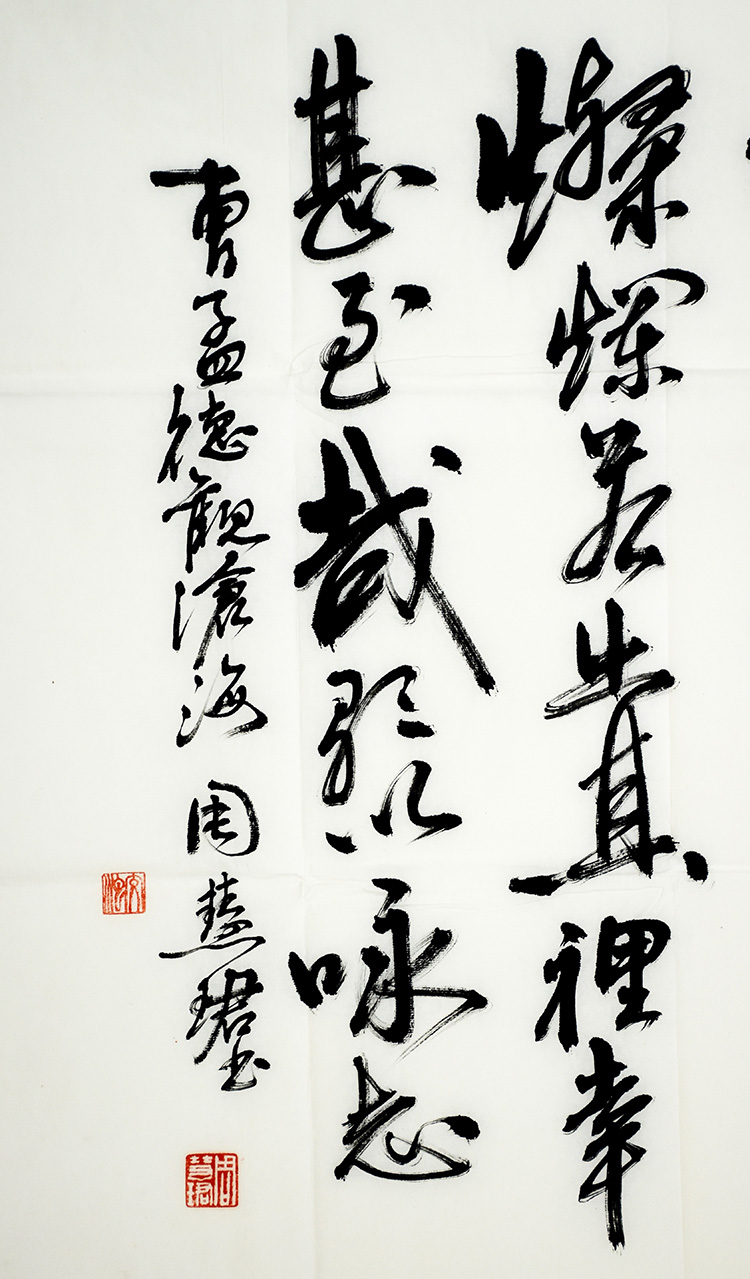 燦爛若出其裡幸
甚至哉歌以咏志
曹孟德觀滄海 周慧珺書
周慧珺